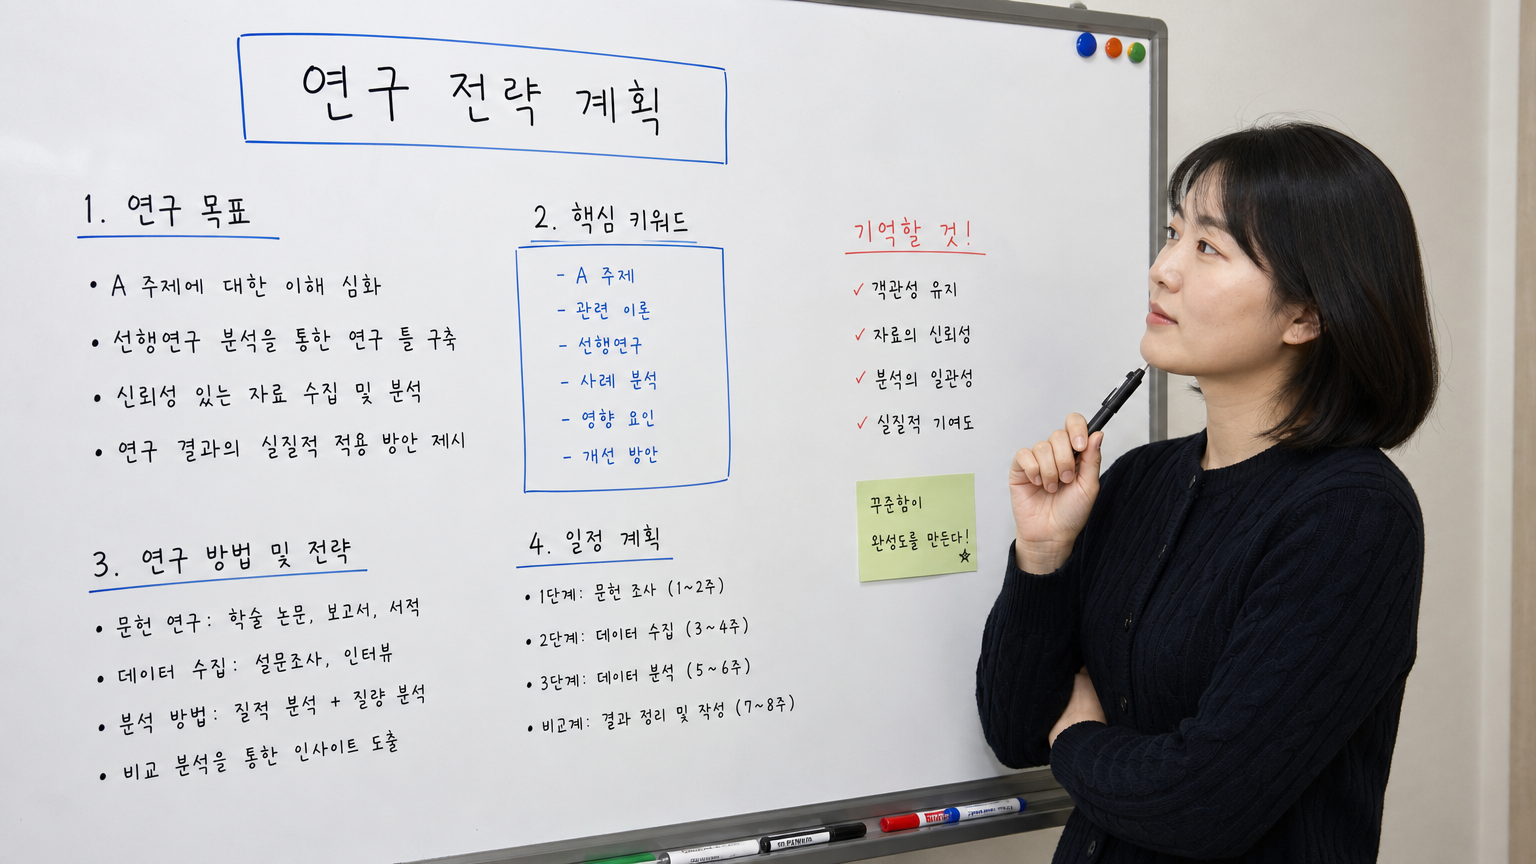 연구 전략 계획
1. 연구 목표
• A 주제에 대한 이해 심화
• 선행연구 분석을 통한 연구 틀 구축
• 신뢰성 있는 자료 수집 및 분석
• 연구 결과의 실질적 적용 방안 제시
2. 핵심 키워드
- A 주제
- 관련 이론
- 선행연구
- 사례 분석
- 영향 요인
- 개선 방안
기억할 것!
✓ 객관성 유지
✓ 자료의 신뢰성
✓ 분석의 일관성
✓ 실질적 기여도
꾸준함이
완성도를 만든다!
☆
3. 연구 방법 및 전략
• 문헌 연구: 학술 논문, 보고서, 서적
• 데이터 수집: 설문조사, 인터뷰
• 분석 방법: 질적 분석 + 질량 분석
• 비교 분석을 통한 인사이트 도출
4. 일정 계획
• 1단계: 문헌 조사 (1~2주)
• 2단계: 데이터 수집 (3~4주)
• 3단계: 데이터 분석 (5~6주)
• 비교계: 결과 정리 및 작성 (7~8주)